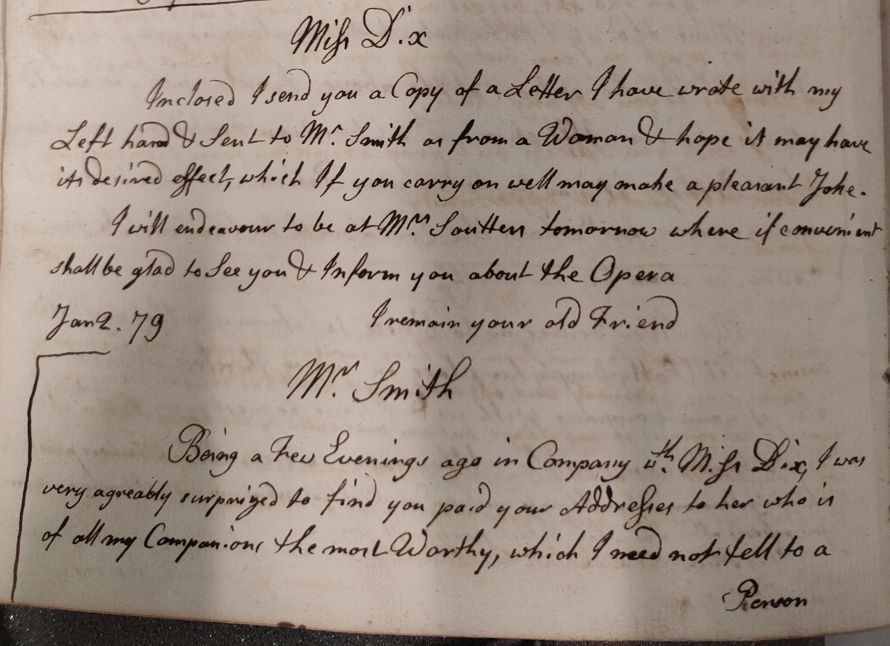 Miss Dix
Inclosed I send you a Copy of a Letter I have wrote with my
Left hand & Sent to Mr. Smith as from a Woman & hope it may have
its desired effect, which If you carry on well may make a pleasant Joke.
I will endeavour to be at Mrs Souttens tomorrow where if convenient
shall be glad to See you & Inform you about the Opera
Jan 2. 79 I remain your old Friend
Mr Smith
Being a Few Evenings ago in Company wth. Miss Dix, I was
very agreably surprized to find you paid your Addresses to her who is
of all my Companions the most Worthy, which I need not tell to a
Person